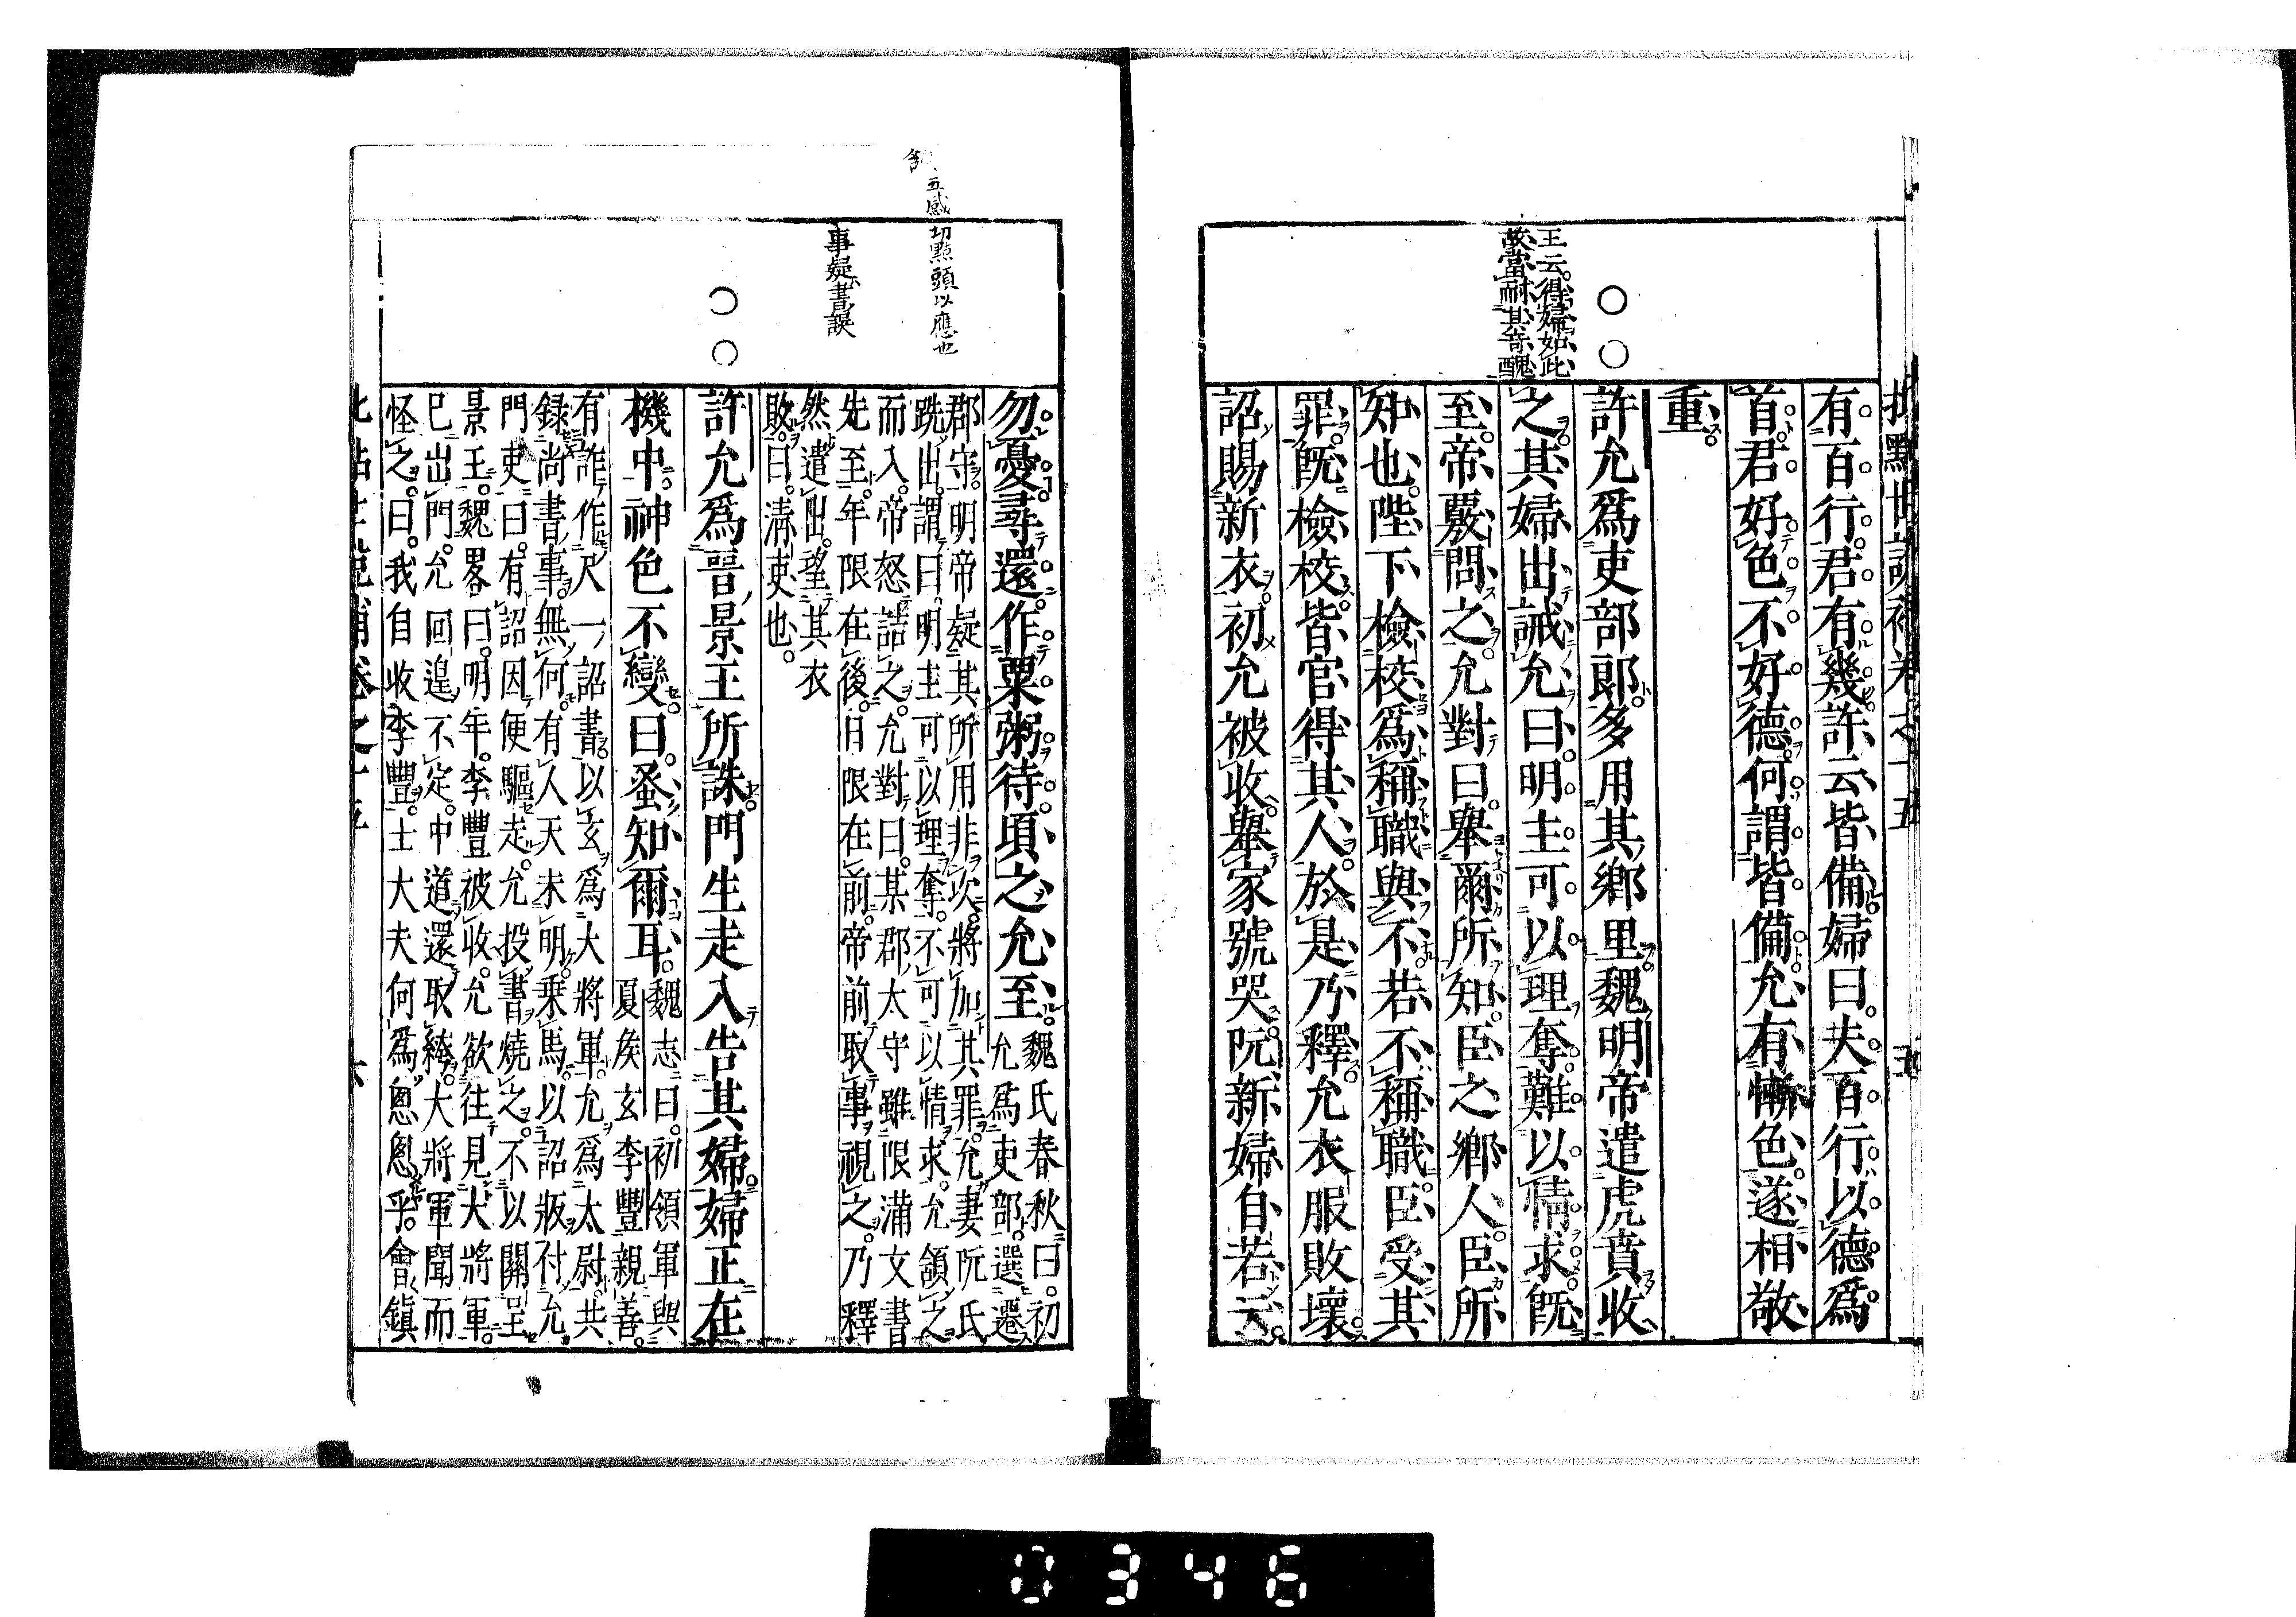 有百行君有幾許云皆備婦曰夫百行以德爲
首君好色不好德何謂皆備允有慚色遂相敬
重
王云得婦如此
故當耐其奇醜
許允爲吏部郞多用其鄕里魏明帝遣虎賁收
之其婦出誡允曰明主可以理奪難以情求旣
至帝覈問之允對曰舉爾所知臣之鄕人臣所
知也陛下檢校爲稱職與不若不稱職臣受其
罪旣檢校皆官得其人於是乃釋允衣服敗壞
詔賜新衣初允被收舉家號哭阮新婦自若云
五感切點頭以應也
事疑書誤
勿憂尋還作粟粥待頃之允至
魏氏春秋曰初
允爲吏部選遷
郡守明帝疑其所用非次將加其罪允妻阮氏
跣出謂曰明主可以理奪不可以情求允頷之
而入帝怒詰之允對曰某郡太守雖限滿文書
先至年限在後日限在前帝前取事視之乃釋
然遣出望其衣
敗曰淸吏也
許允爲晉景王所誅門生走入告其婦婦正在
機中神色不變曰蚤知爾耳
魏志曰初領軍與
夏侯玄李豐親善
有詐作尺一詔書以玄爲大將軍允爲太尉共
録尚書事無何有人天未明乗馬以詔版付允
門吏曰有詔因便驅走允投書燒之不以關呈
景王魏畧曰明年李豐被收允欲往見大將軍
已出門允回遑不定中道還取絝大將軍聞而
怪之曰我自收李豐士大夫何爲悤悤乎會鎭
0346